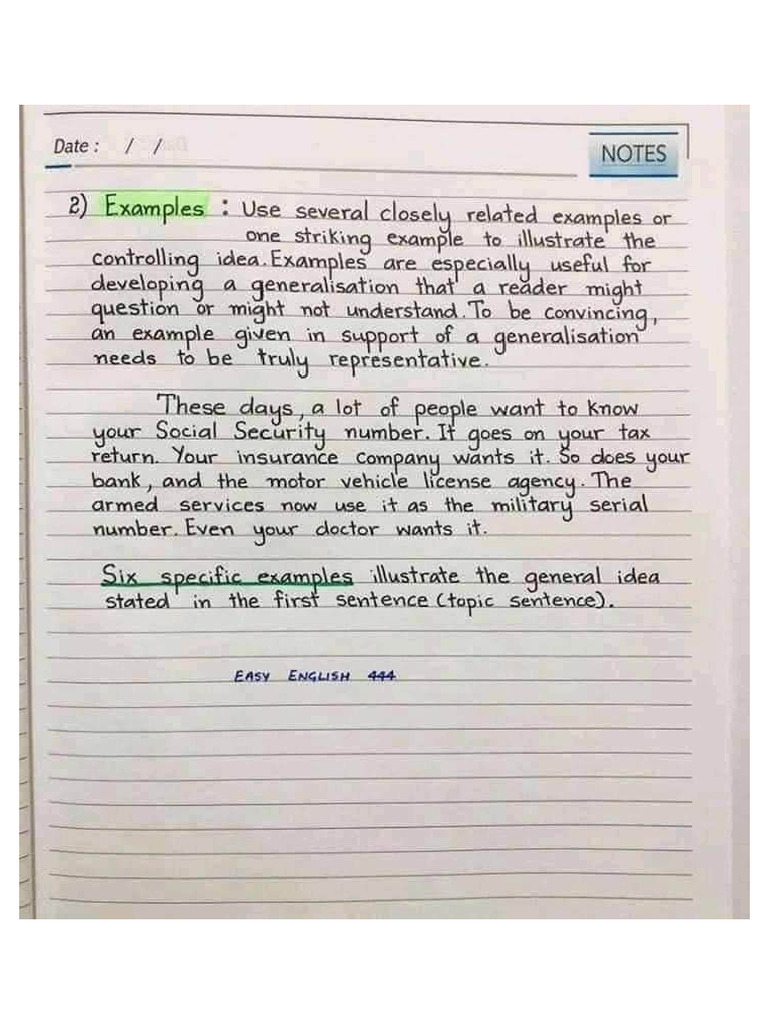 Date : / /
NOTES
2) Examples : Use several closely related examples or
one striking example to illustrate the
controlling idea. Examples are especially useful for
developing a generalisation that a reader might
question or might not understand. To be convincing,
an example given in support of a generalisation
needs to be truly representative.
These days, a lot of people want to know
your Social Security number. It goes on your tax
return. Your insurance company wants it. So does your
bank, and the motor vehicle license agency. The
armed services now use it as the military serial
number. Even your doctor wants it.
Six specific examples illustrate the general idea
stated in the first sentence (topic sentence).
EASY ENGLISH 444